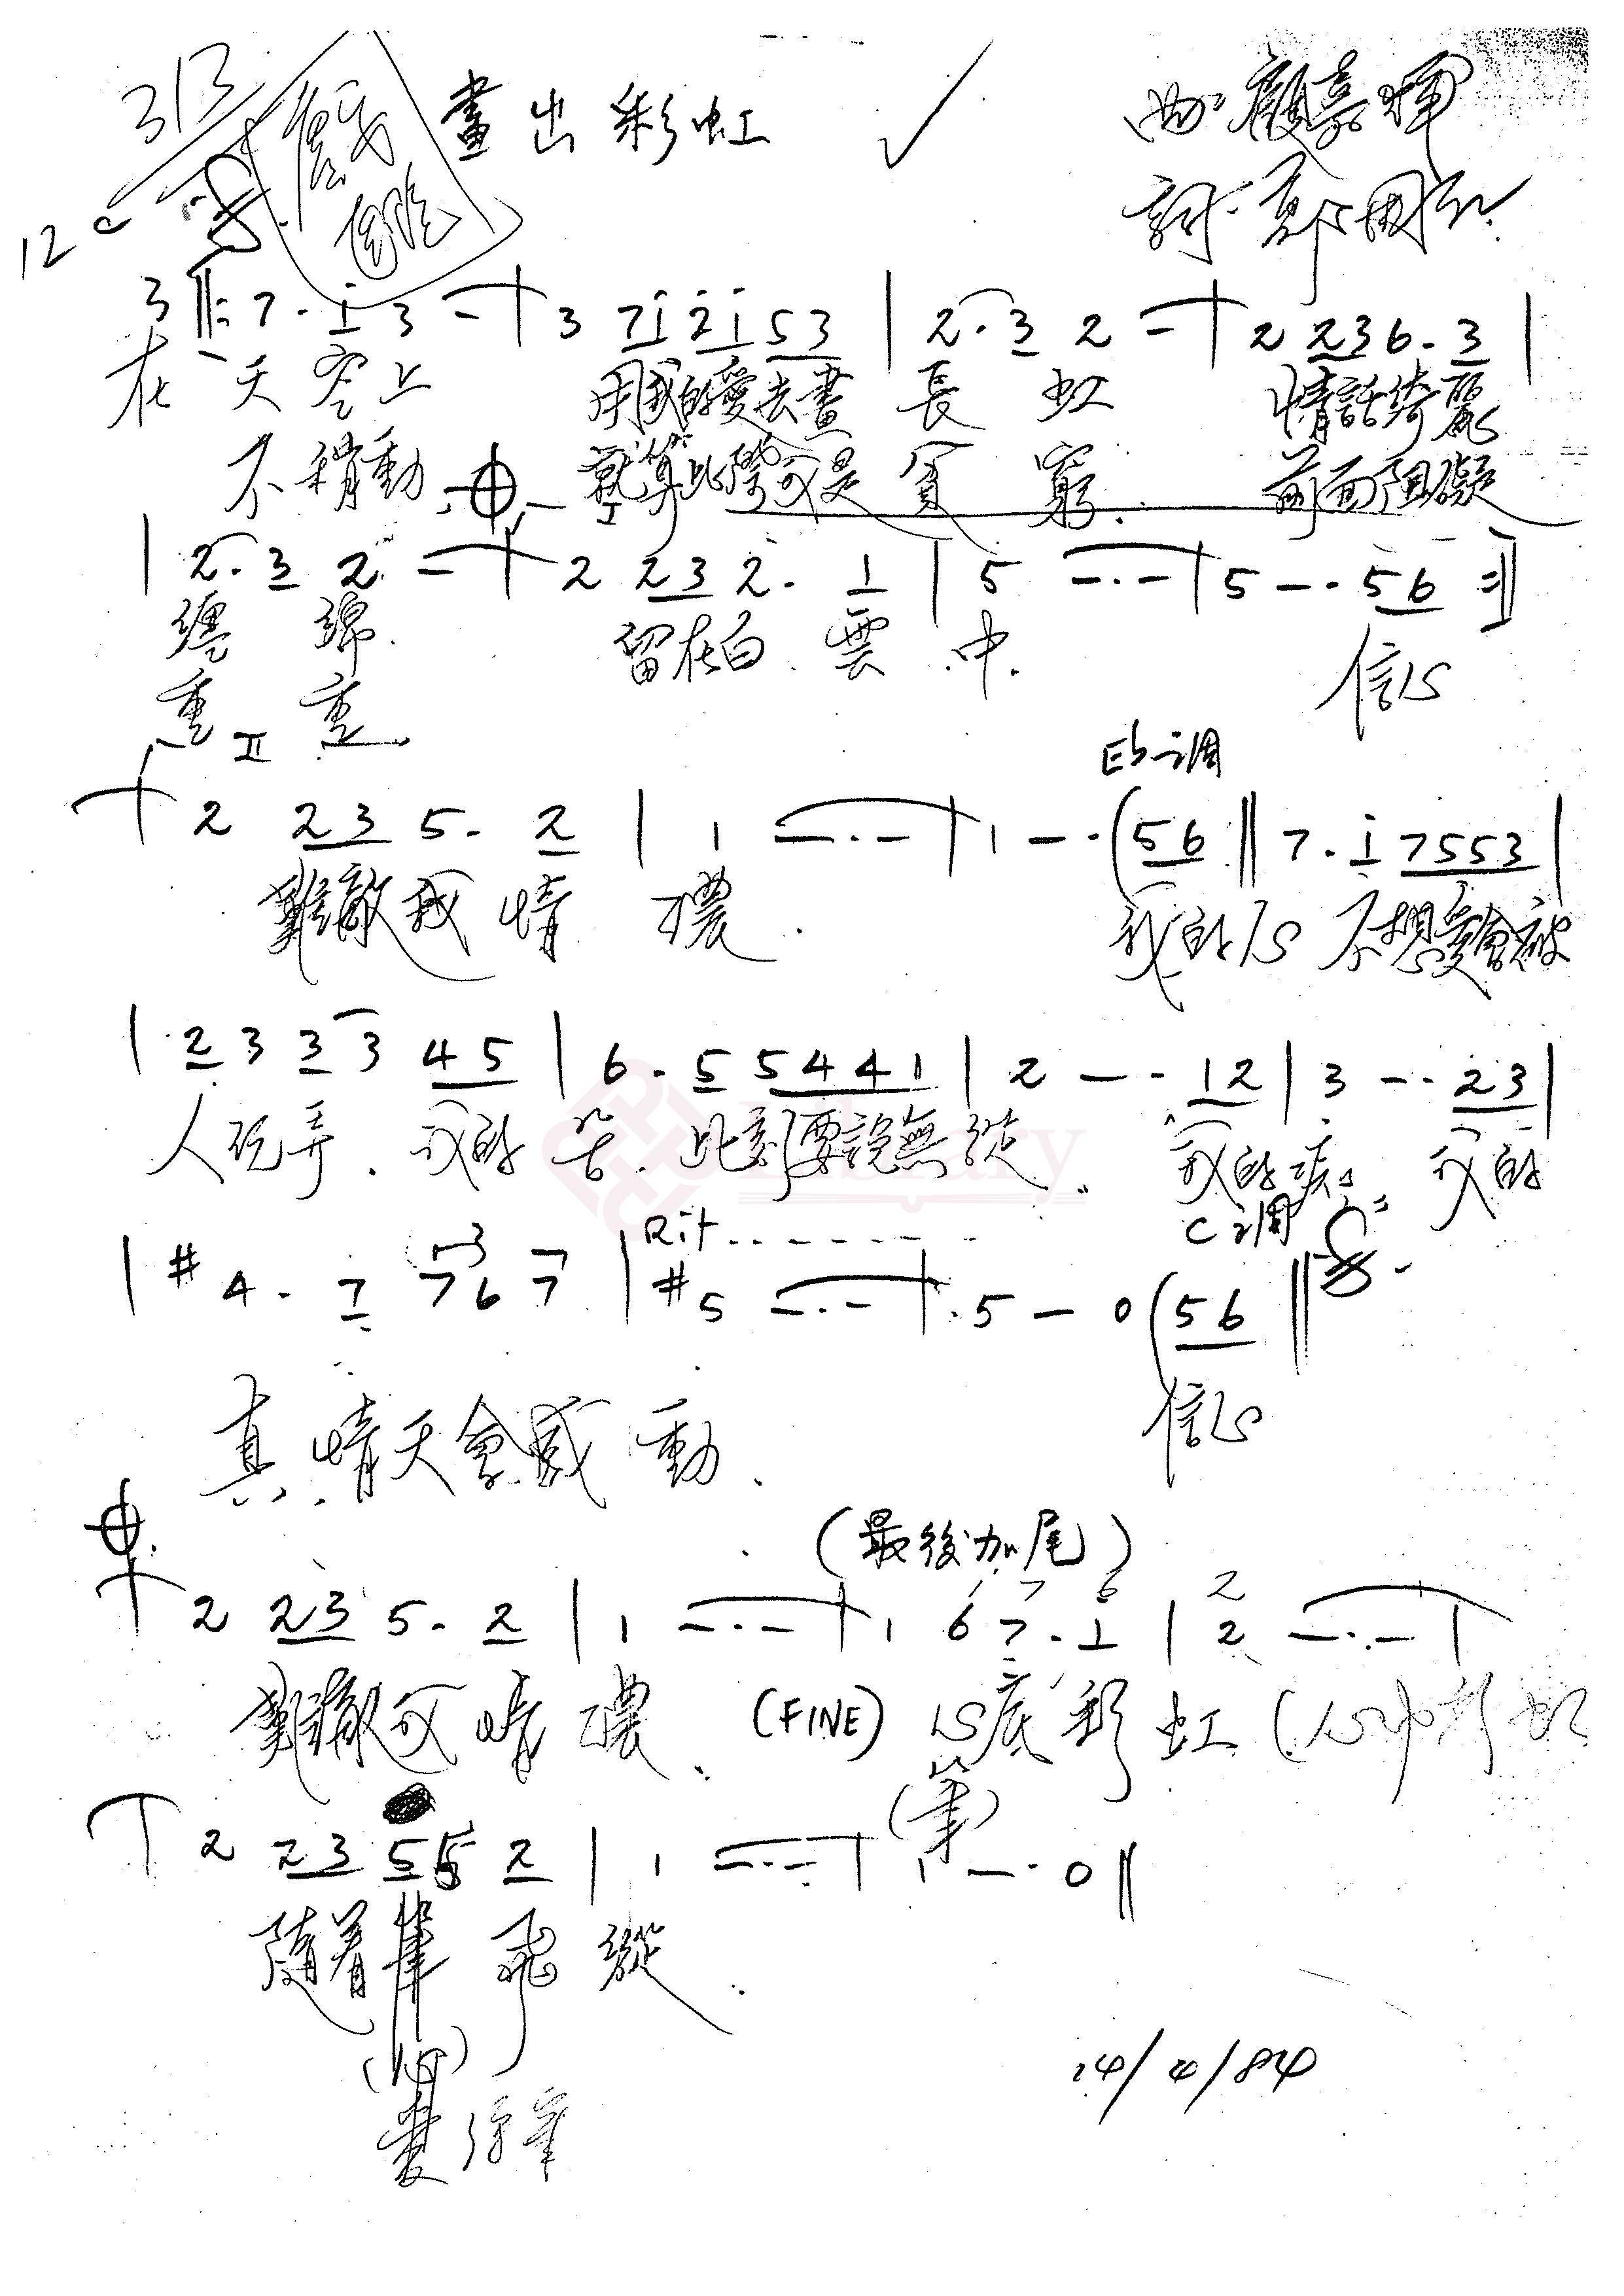 313
畫出彩虹 ✓ 曲:顧嘉煇
詞:鄭國江
12
3 ‖: 7 · i 3 — | 3 7i 2i 53 | 2 · 3 2 — | 2 23 6 · 3 |
在 天空上 用我的愛去畫 長 虹 情話綺麗
不稍動 就算此際我是 貧 窮 前面阻礙
I
| 2 · 3 2 — | 2 23 2 · 1 | 5 — · — | 5 — · 56 :‖
纏 綿 留在白 雲 中 信心
重 重
II
Eb調
2 23 5 · 2 | 1 — · — | 1 — · (56 ‖ 7 · i 7553 |
難敵我情 濃 我的心 不想愛會被
| 2 3 3 3 45 | 6 · 5 5441 | 2 — · 12 | 3 — · 23 |
人玩弄 我的 苦 此刻要說無從 我的淚 我的
Library
C調
Rit
| #4 · 7 767 | #5 — · — | 5 — 0 (56 ‖
3
真情天會感 動 信心
(最後加尾)
1 7 6 2
2 23 5 · 2 | 1 — · — | 1 67 · i | 2 — · — |
難敵我情 濃 (FINE) 心底彩 虹 (心中彩虹
(筆)
2 23 55 2 | 1 — · — | 1 — · 0 ‖
隨着筆 飛 縱
(心)
14/4/84